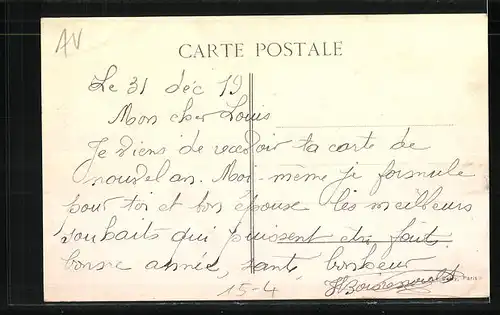 AV
CARTE POSTALE
Le 31 déc 19
Mon cher Louis
Je viens de recevoir ta carte de
nouvel an. Moi-même je formule
pour toi et ton épouse les meilleurs
souhaits qui puissent être fait.
bonne année, santé, bonheur
15-4